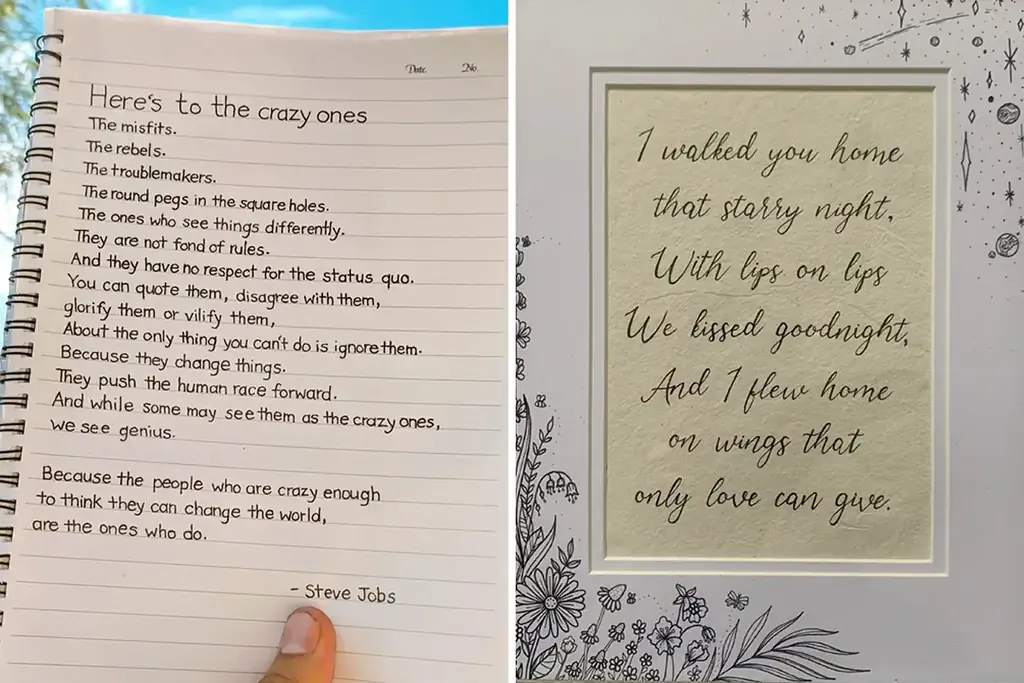 Date No.
Here's to the crazy ones
The misfits.
The rebels.
The troublemakers.
The round pegs in the square holes.
The ones who see things differently.
They are not fond of rules.
And they have no respect for the status quo.
You can quote them, disagree with them,
glorify them or vilify them,
About the only thing you can't do is ignore them.
Because they change things.
They push the human race forward.
And while some may see them as the crazy ones,
we see genius.
Because the people who are crazy enough
to think they can change the world,
are the ones who do.
- Steve Jobs
I walked you home
that starry night,
With lips on lips
We kissed goodnight,
And I flew home
on wings that
only love can give.